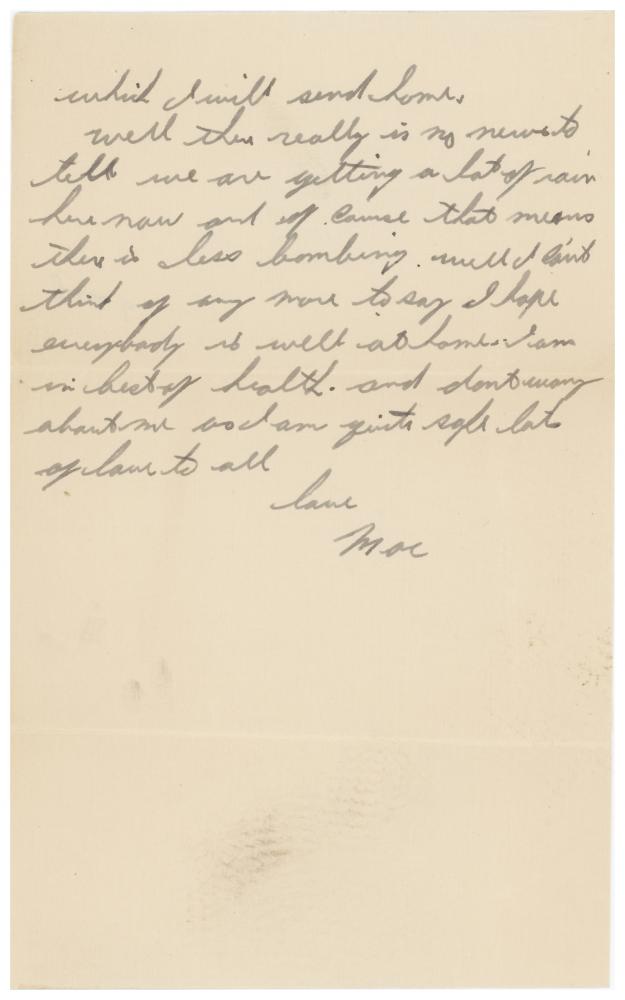 which I will send home.
well there really is no news to
tell we are getting a lot of rain
here now and of course that means
there is less bombing. well I cant
think of any more to say I hope
everybody is well at home. I am
in best of health. and dont worry
about me as I am quite safe lots
of love to all
love
Mac